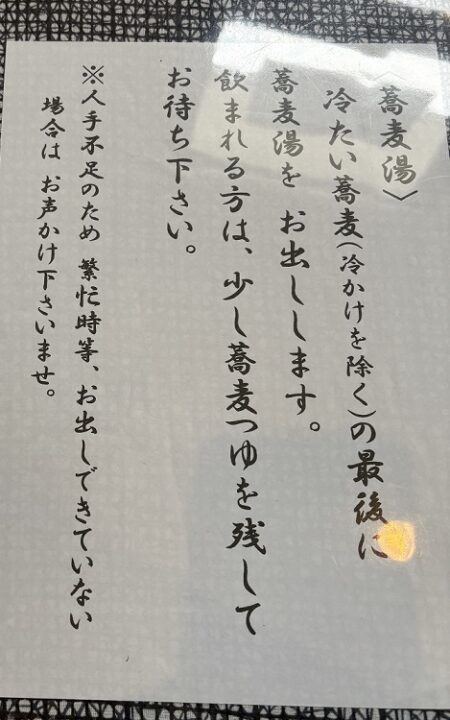 〈蕎麦湯〉
冷たい蕎麦(冷かけを除く)の最後に
蕎麦湯を お出しします。
飲まれる方は、少し蕎麦つゆを残して
お待ち下さい。
※人手不足のため 繁忙時等、お出しできていない
場合は お声かけ下さいませ。